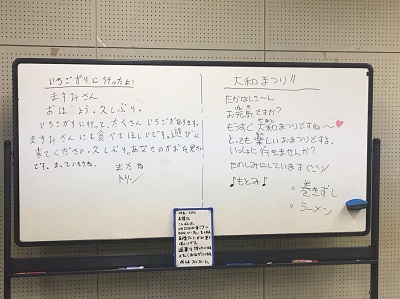 いちごがりに行ったよ!
ますみさん
おはよう。久しぶり。
いちごがりに行って、たくさんいちごがあります。
ますみさんにも食べてほしいです。遊びに
来てください。久しぶり。あなたのかおを見たい
です。まっていますね。
またね
トリン
大和まつり!!
たかはしさ〜ん
お元気ですか?
もうすぐ大和まつりですね〜
とっても楽しいおまつりです。
いっしょに行きませんか?
たのしみにしています(^_^)/
♪もとみ♪
巻きずし
ラーメン